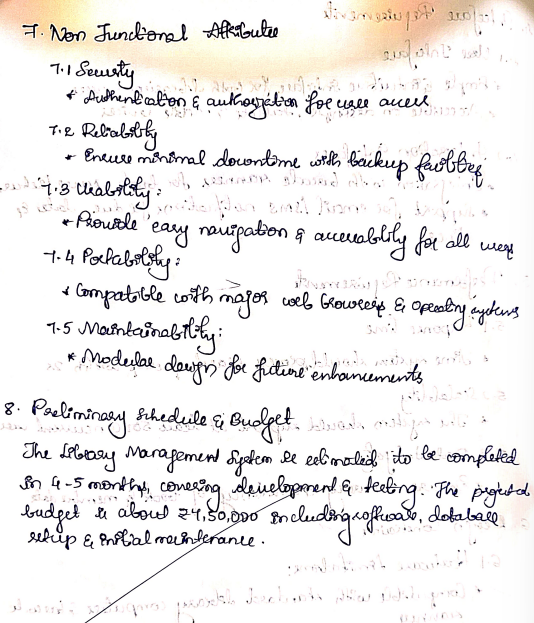 7. Non Functional Attributes
7.1 Security
* Authentication & authorization for user access
7.2 Reliability
* Ensure minimal downtime with backup facilities
7.3 Usability:
* Provide easy navigation & accessability for all users
7.4 Portability:
* Compatible with major web browsers & Operating systems
7.5 Maintainability:
* Modular design for future enhancements
8. Preliminary Schedule & Budget
The Library Management System is estimated to be completed
in 4-5 months, covering development & testing. The projected
budget is about ₹4,50,000 including software, database
setup & initial maintenance.